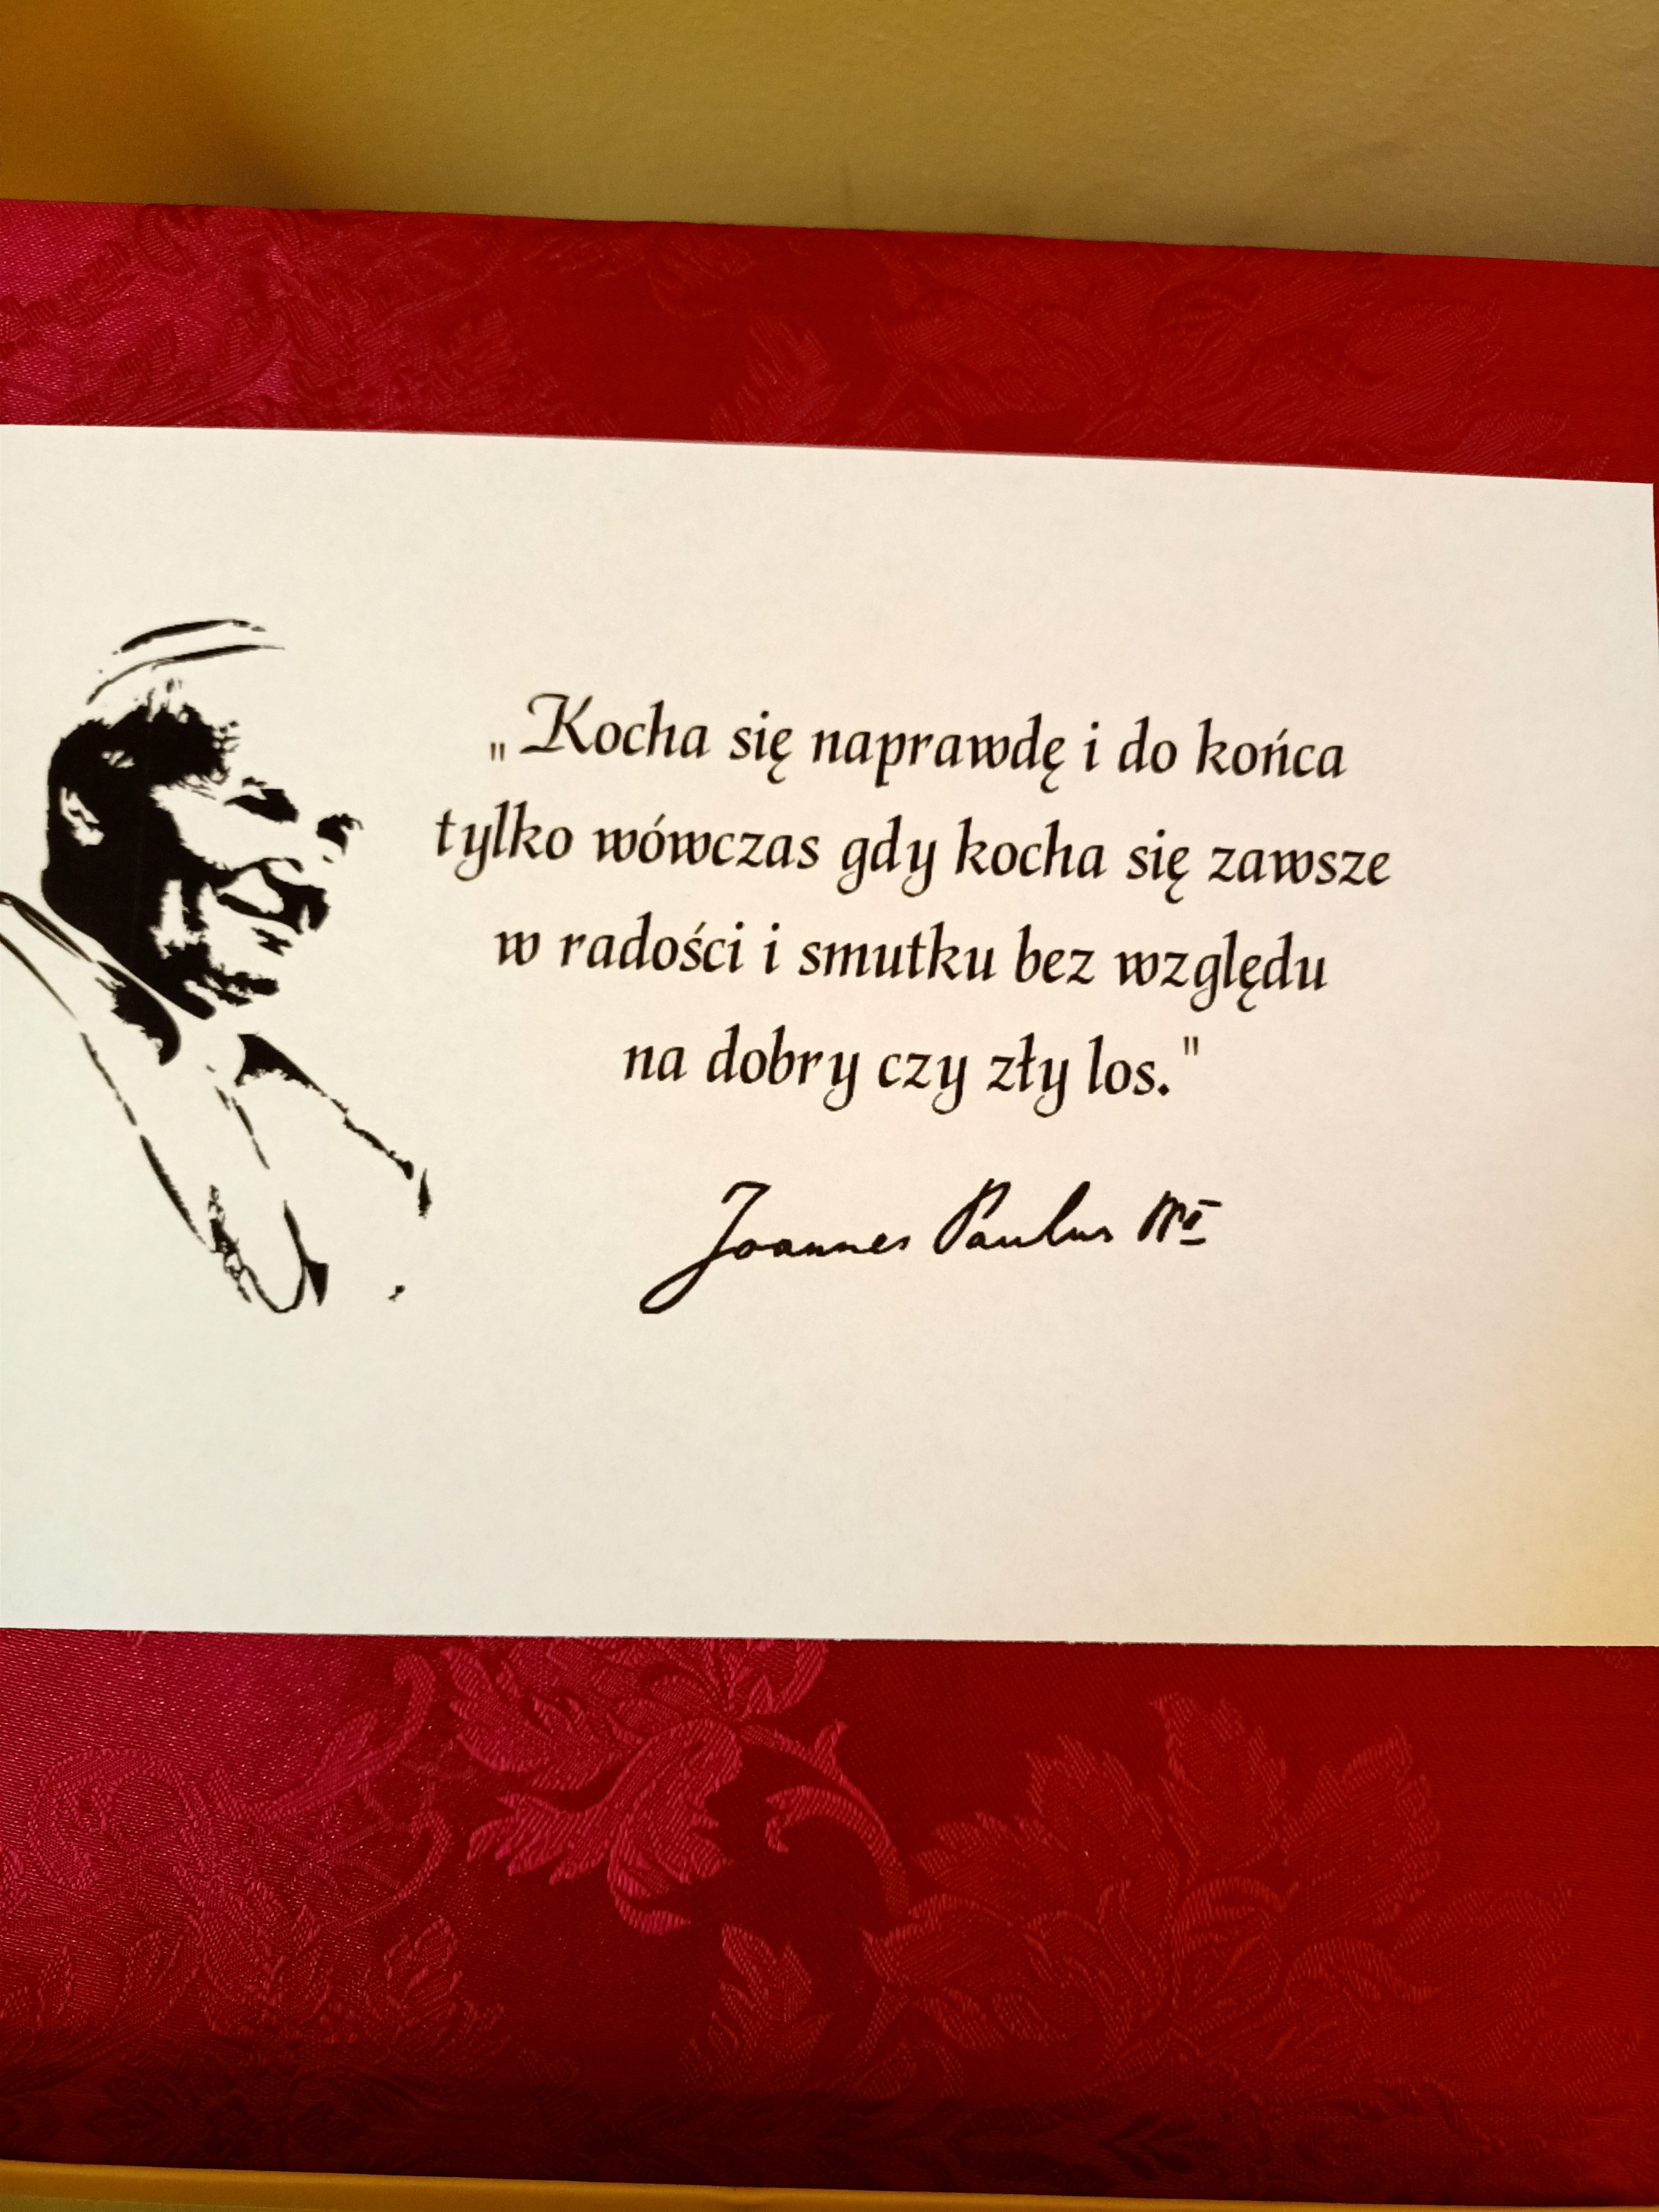 „Kocha się naprawdę i do końca
tylko wówczas gdy kocha się zawsze
w radości i smutku bez względu
na dobry czy zły los."
Joannes Paulus II